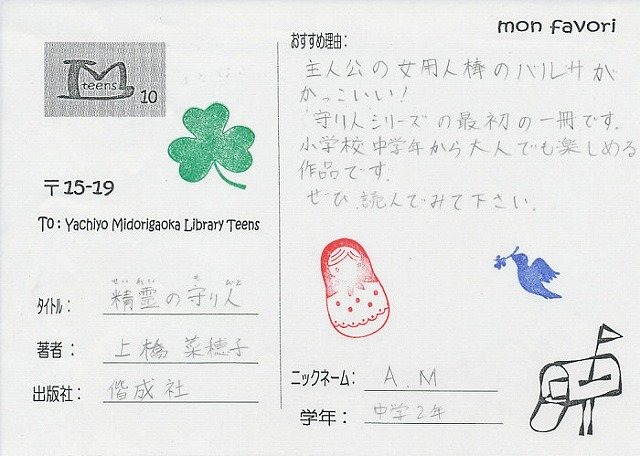 mon favori
teens
10
〒15-19
To: Yachiyo Midorigaoka Library Teens
タイトル: 精霊の守り人
せいれい もり びと
著者: 上橋 菜穂子
出版社: 偕成社
おすすめ理由:
主人公の女用人棒のバルサが
かっこいい!
守り人シリーズの最初の一冊です。
小学校中学年から大人でも楽しめる
作品です。
ぜひ、読んでみて下さい。
ニックネーム: A.M
学年: 中学2年